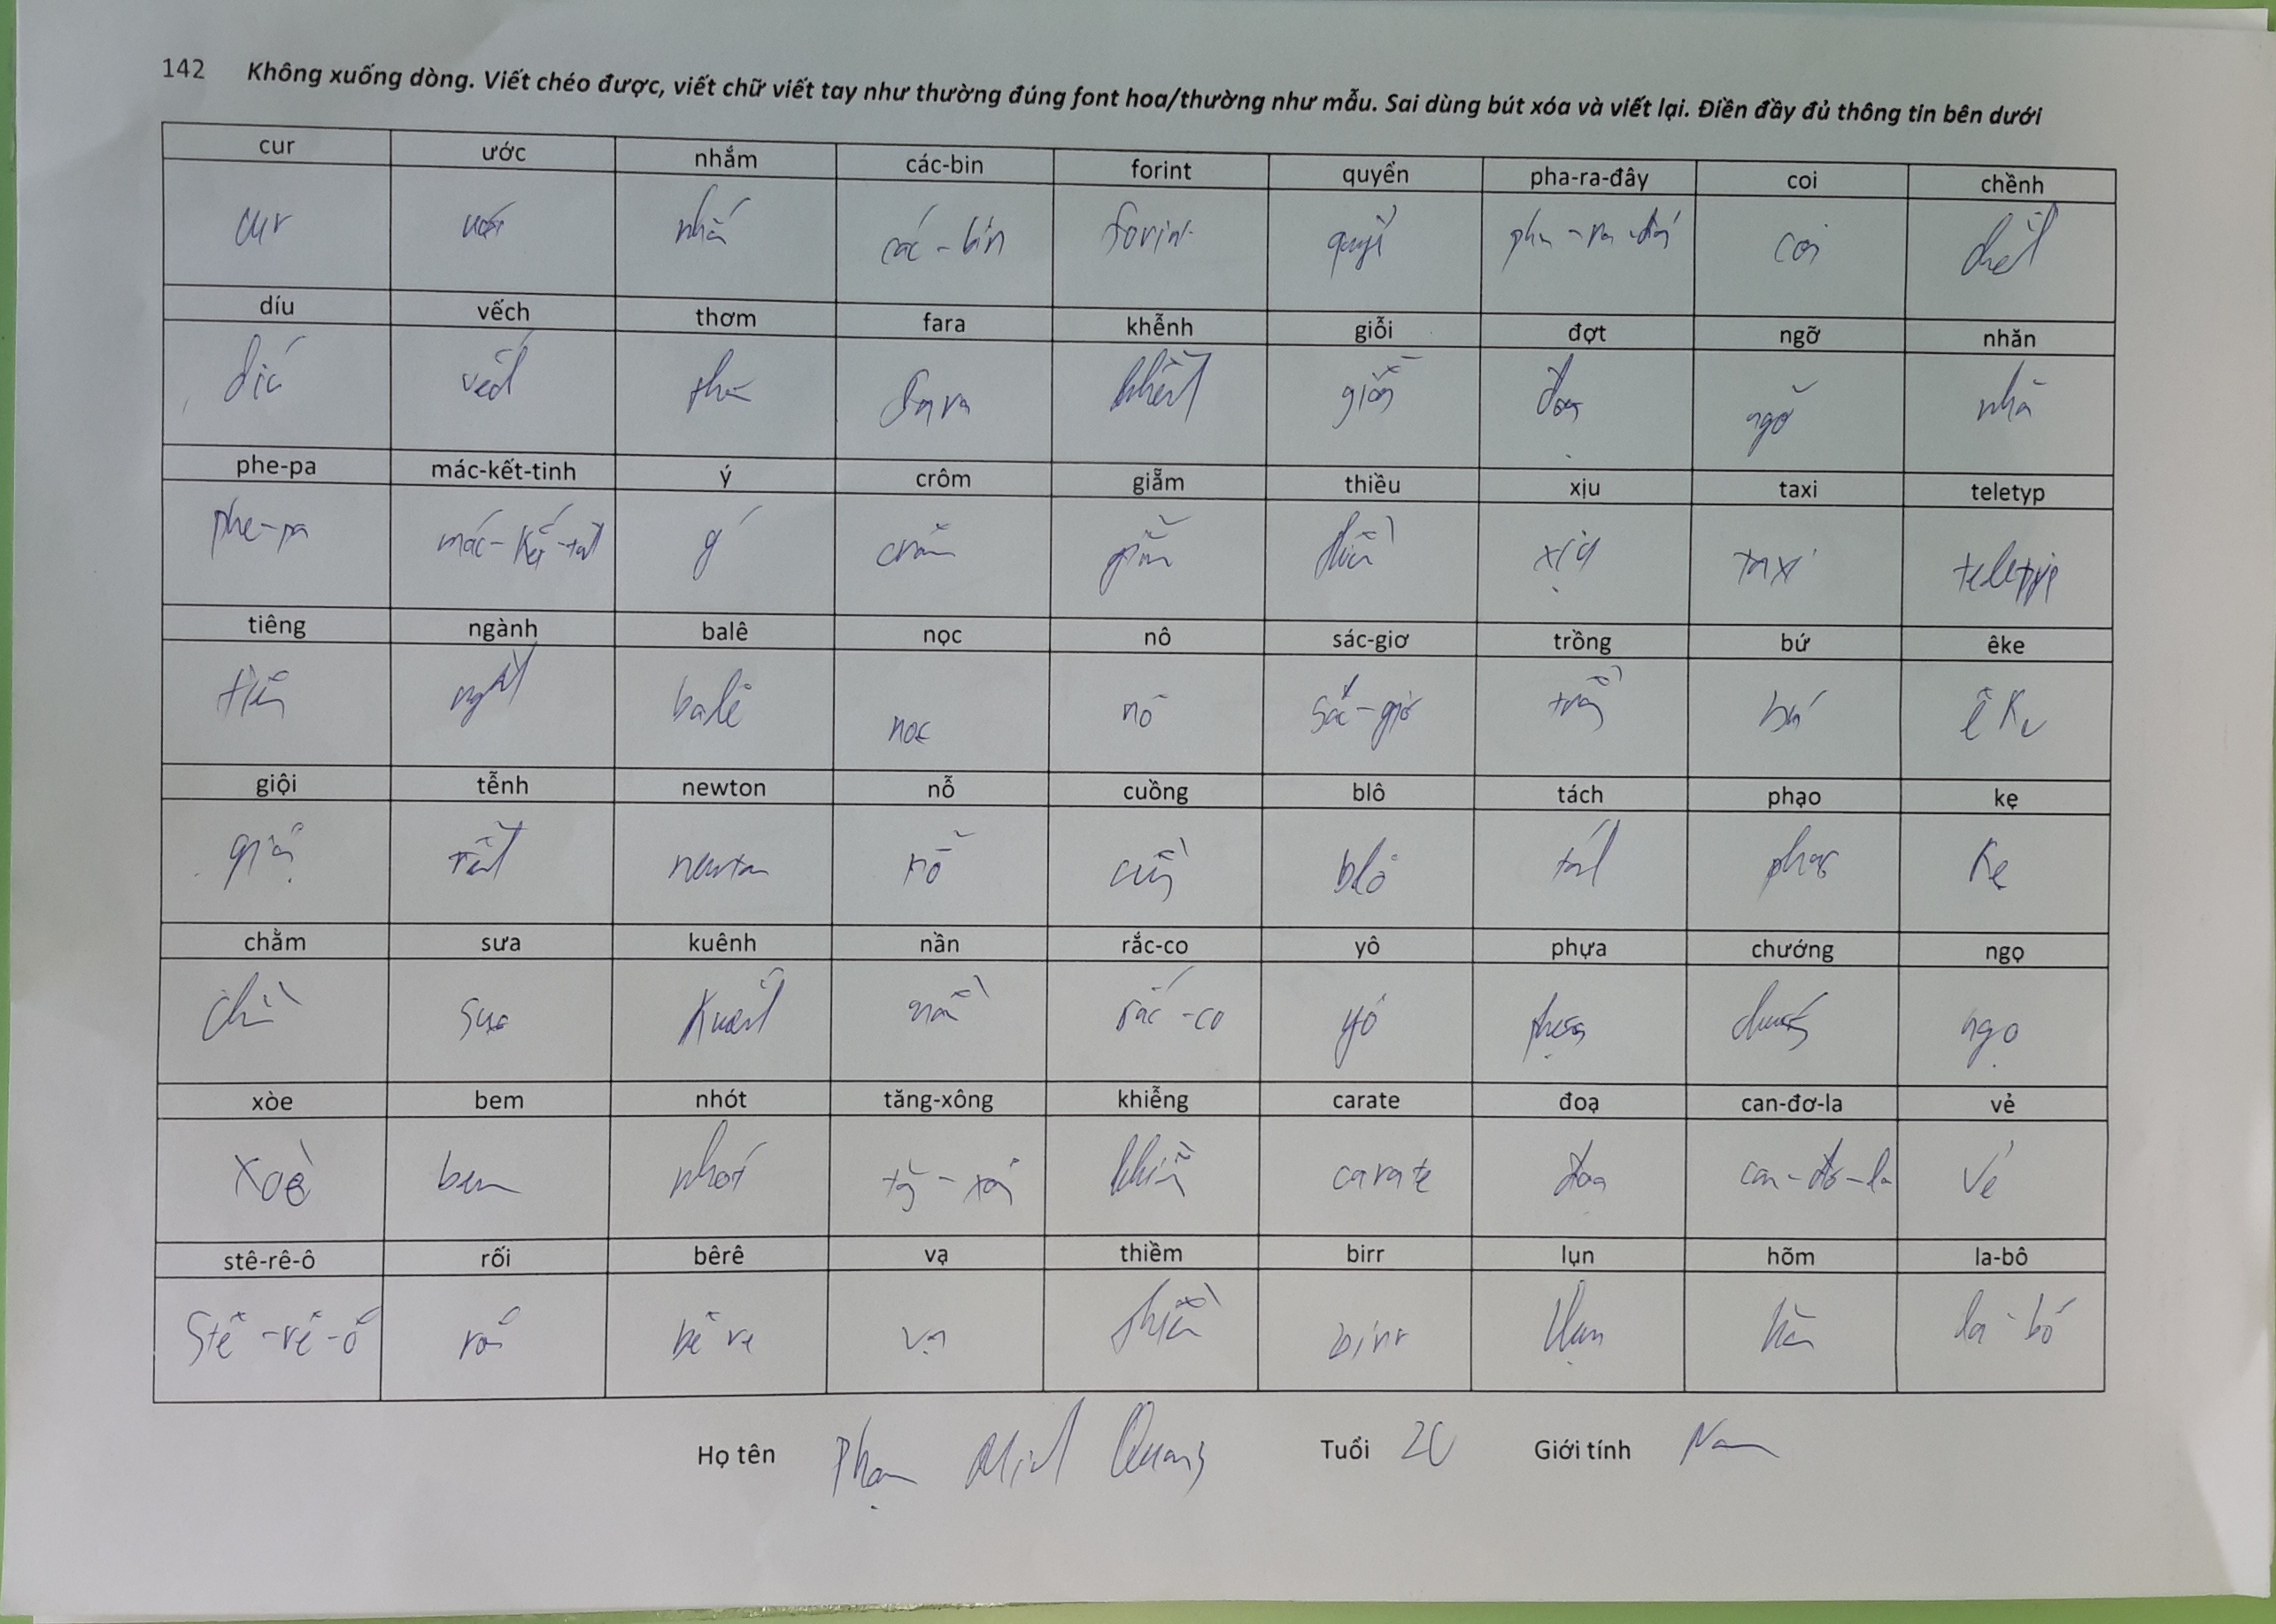 142 Không xuống dòng. Viết chéo được, viết chữ viết tay như thường đúng font hoa/thường như mẫu. Sai dùng bút xóa và viết lại. Điền đầy đủ thông tin bên dưới
cur ước nhắm các-bin forint quyển pha-ra-đây coi chềnh
cur ước nhắm các-bin forint quyển pha-ra-đây coi chềnh
díu vếch thơm fara khễnh giỗi đợt ngỡ nhăn
díu vếch thơm fara khễnh giỗi đợt ngỡ nhăn
phe-pa mác-kết-tinh ý crôm giẫm thiều xịu taxi teletyp
phe-pa mác-kết-tinh ý crôm giẫm thiều xịu taxi teletyp
tiêng ngành balê nọc nô sác-giơ trồng bứ êke
tiêng ngành balê nọc nô sác-giơ trồng bứ êke
giội tễnh newton nỗ cuồng blô tách phạo kẹ
giội tễnh newton nỗ cuồng blô tách phạo kẹ
chằm sưa kuênh nần rắc-co yô phựa chướng ngọ
chằm sưa kuênh nần rắc-co yô phựa chướng ngọ
xòe bem nhót tăng-xông khiễng carate đoạ can-đơ-la vẻ
xoè bem nhót tăng-xông khiễng carate đoạ can-đơ-la vẻ
stê-rê-ô rối bêrê vạ thiềm birr lụn hõm la-bô
stê-rê-ô rối bêrê vạ thiềm birr lụn hõm la-bô
Họ tên Phạm Minh Quang Tuổi 20 Giới tính Nam